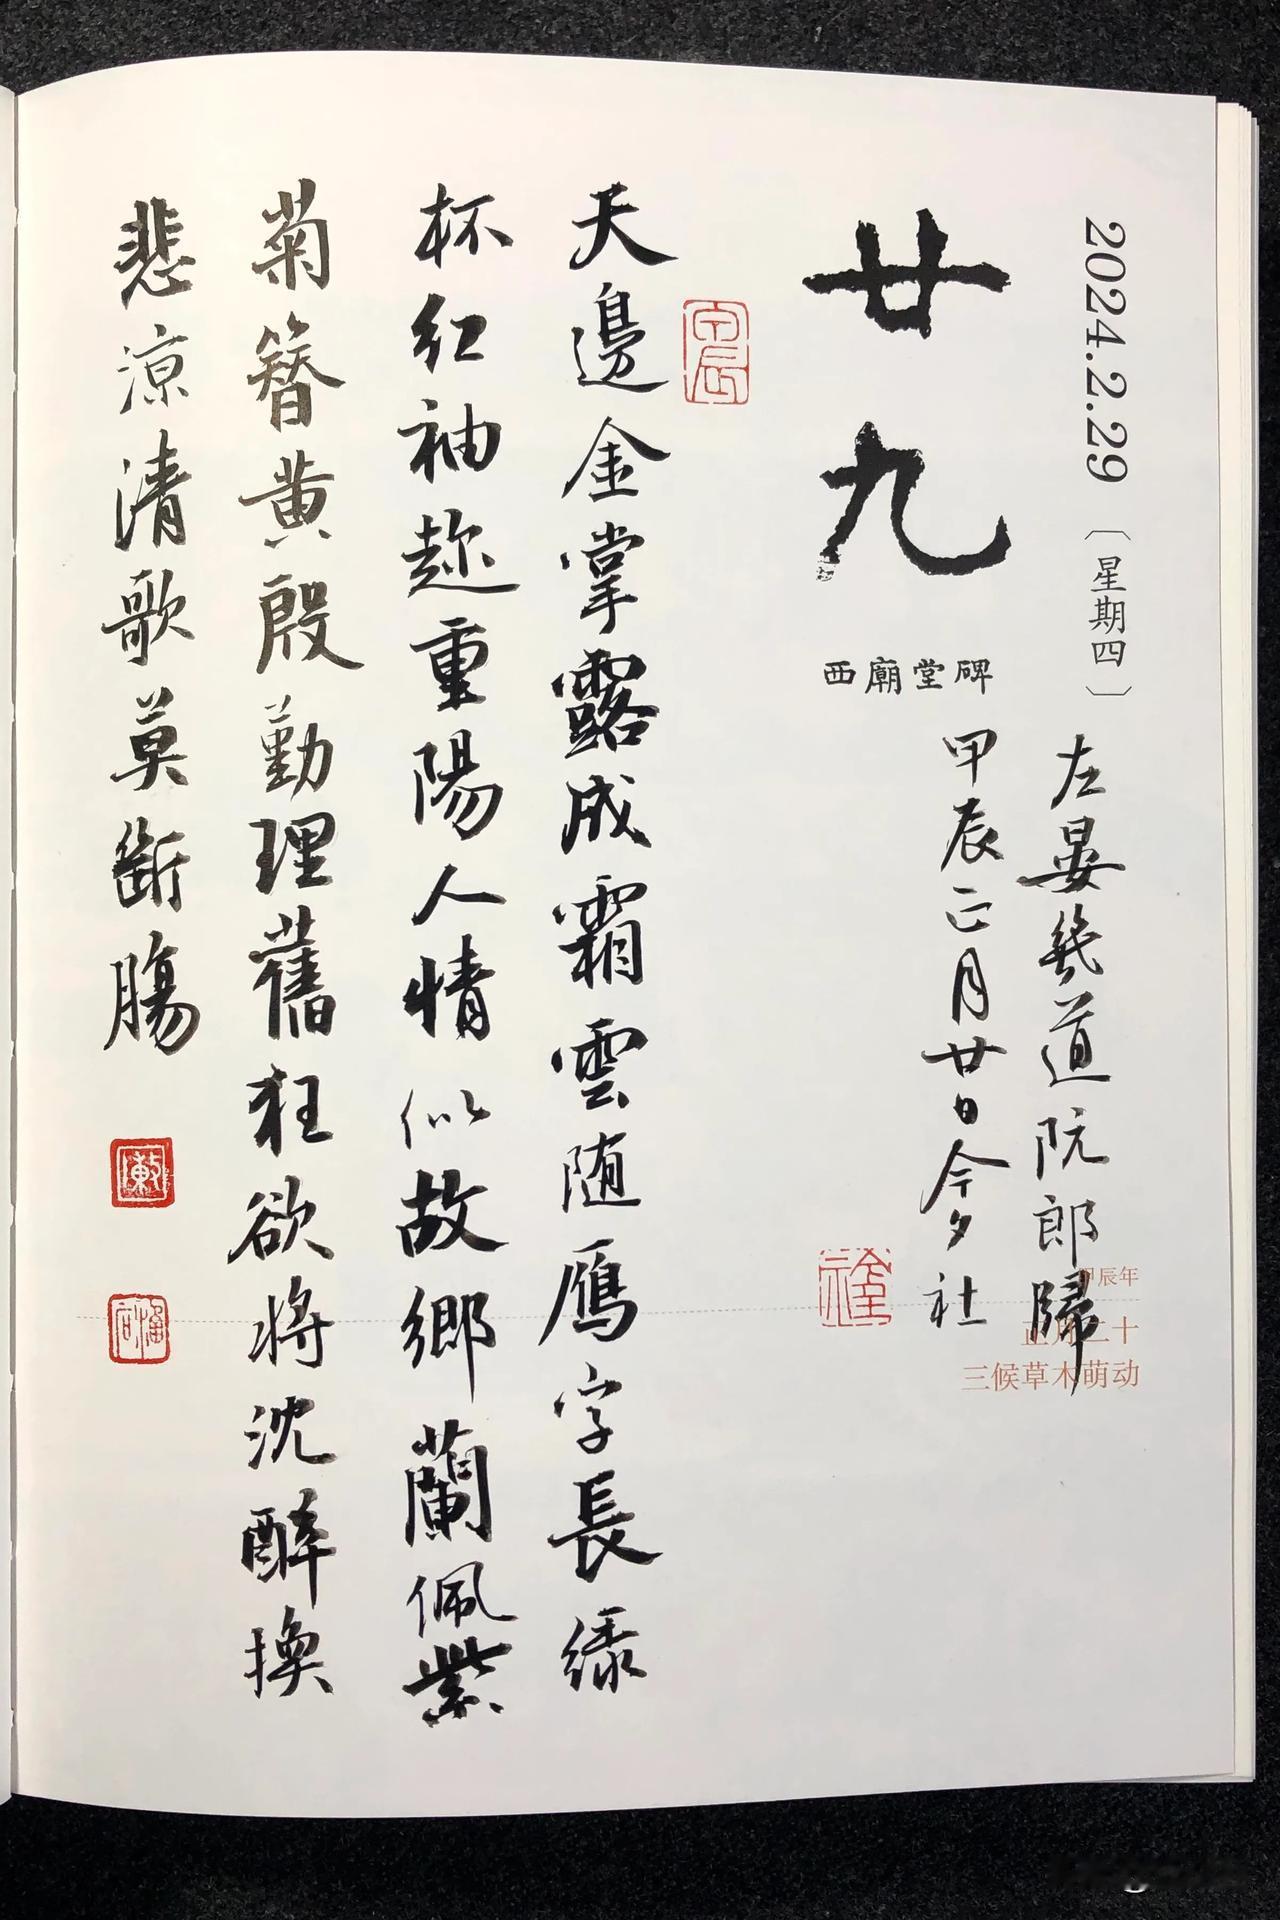 2024.2.29〔星期四〕
廿九
西廟堂碑
左晏幾道阮郎歸
甲辰正月廿日今夕社
甲辰年
正月二十
三候草木萌动
天邊金掌露成霜雲随雁字長緑
杯紅袖趂重陽人情似故鄉蘭佩紫
菊簪黄殷勤理舊狂欲将沈醉換
悲涼清歌莫斷腸